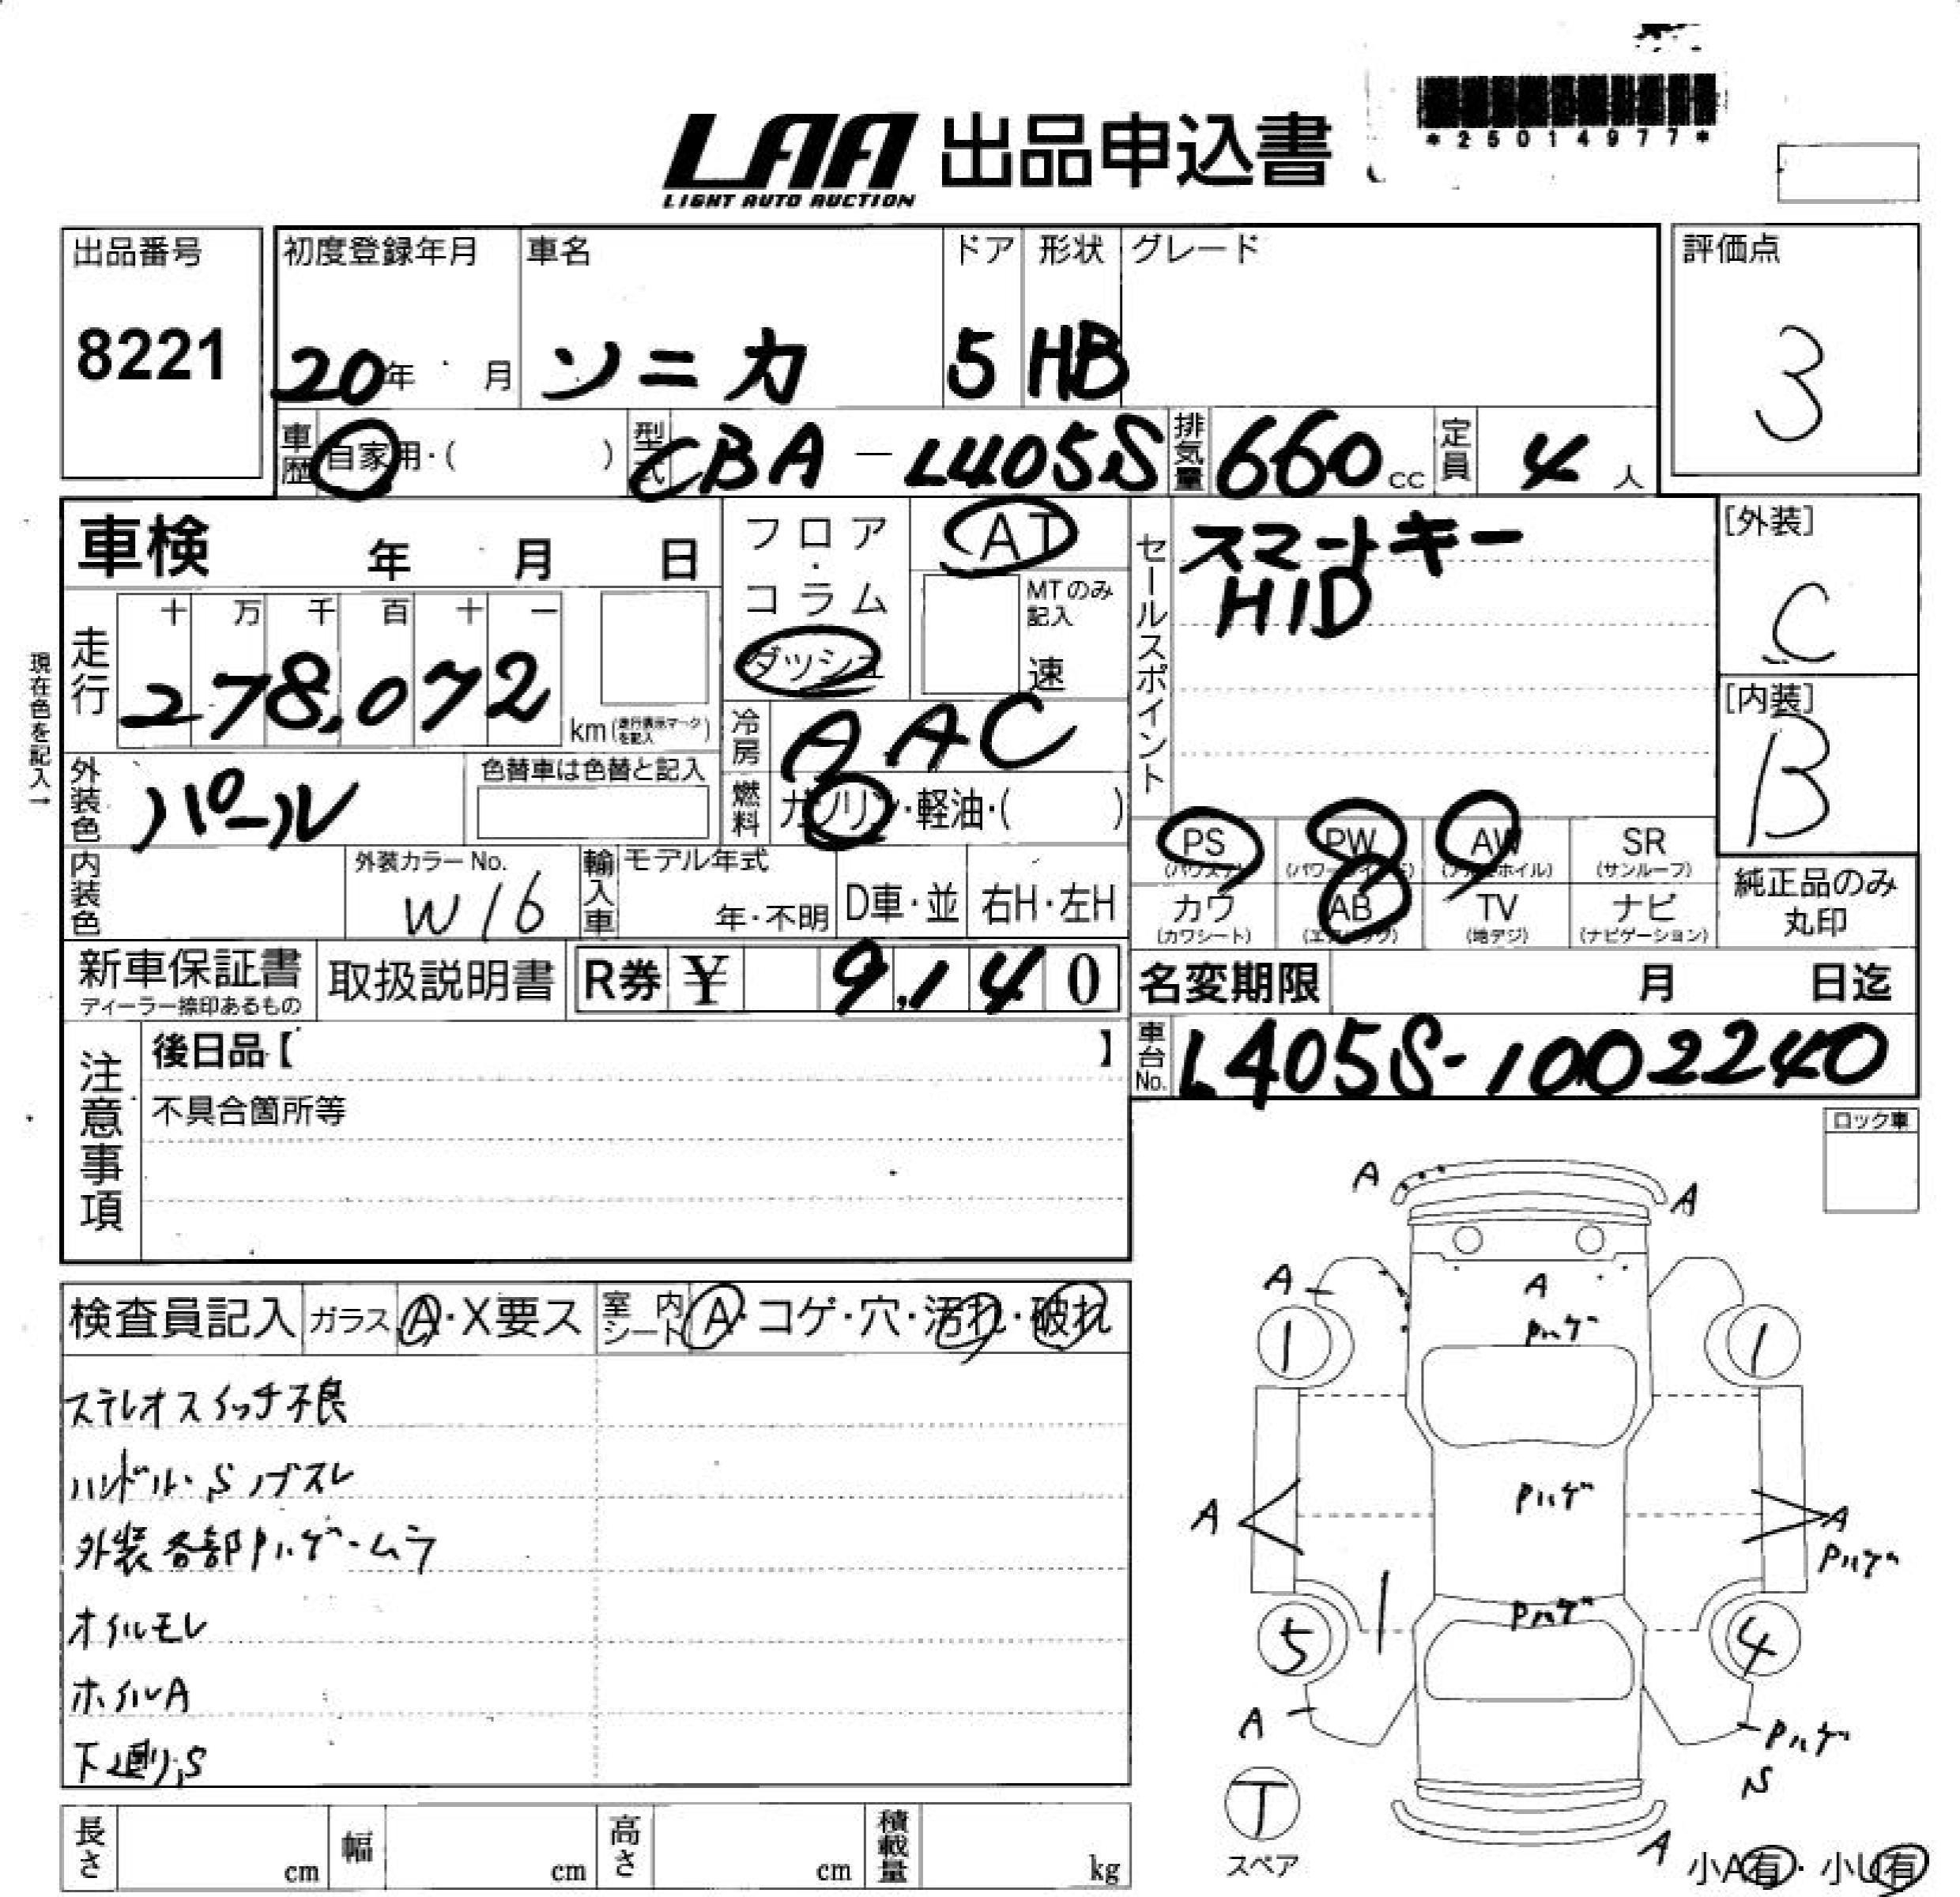 LAA 出品申込書
LIGHT AUTO AUCTION
*25014977*
出品番号
8221
初度登録年月
20年 月
車名
ソニカ
ドア
5
形状
HB
グレード
評価点
3
車歴 自家用・( )
型式 CBA-L405S
排気量 660cc
定員 4人
車検 年 月 日
フロア・コラム
ダッシュ
AT
MTのみ記入
速
セールスポイント
スマートキー
HID
[外装]
C
[内装]
B
現在色を記入→
走行 十 万 千 百 十 一
278,072 km(走行表示マークを記入)
冷房 AAC
燃料 ガソリン・軽油・( )
外装色 パール
色替車は色替と記入
内装色
外装カラーNo.
W16
輸入車
モデル年式
年・不明
D車・並
右H・左H
PS (パワステ)
PW (パワーウィンド)
AW (アルミホイル)
SR (サンルーフ)
カワ (カワシート)
AB (エアバッグ)
TV (地デジ)
ナビ (ナビゲーション)
純正品のみ丸印
新車保証書
ディーラー捺印あるもの
取扱説明書
R券 ¥ 9,140
名変期限 月 日迄
車台No. L405S-1002240
注意事項
後日品【 】
不具合箇所等
ロック車
検査員記入
ガラス A・X要ス
室内シート A・コゲ・穴・汚れ・破れ
ステレオスイッチ不良
ハンドル・Sノブスレ
外装各部Pハゲ・ムラ
オイルモレ
ホイルA
下廻りS
A
A
A
A
Pハゲ
1
1
A
Pハゲ
A
Pハゲ
1
Pハゲ
5
4
A
Pハゲ
S
T
スペア
A
小A有・小U有
長さ cm
幅 cm
高さ cm
積載量 kg